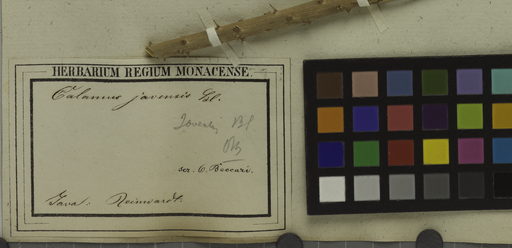 HERBARIUM REGIUM MONACENSE.
Calamus javensis Bl.
Bl
scr. O. Beccari.
Java: Reinwardt.